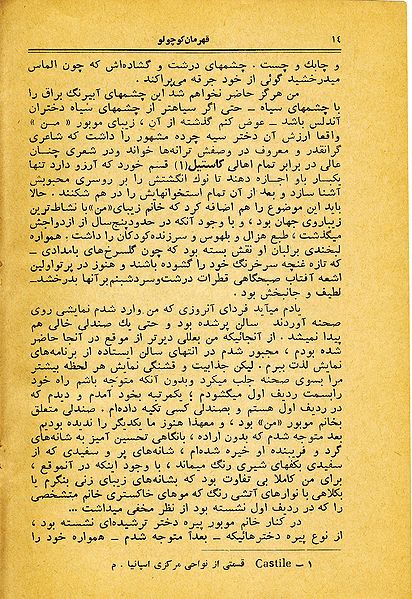 ۱۴ قهرمان کوچولو
و چابك و چست . چشمهای درشت و گشاده‌اش که چون الماس
میدرخشید گوئی از خود جرقه می‌پراکند .
من هرگز حاضر نخواهم شد این چشمهای آبیرنگ براق را
با چشمهای سیاه – حتی اگر سیاهتر از چشمهای سیاه دختران
آندلس باشد – عوض کنم گذشته از آن ، زیبای موبور « من »
واقعا ارزش آن دختر سیه چرده مشهور را داشت که شاعری
گرانقدر و معروف در وصفش ترانه‌ها خواند ودر شعری چنان
عالی در برابر تمام اهالی کاستیل(۱) قسم خورد که آرزو دارد تنها
یکبار باو اجازه دهند تا نوك انگشتش را بر روسری محبوبش
آشنا سازد و بعد از آن تمام استخوانهایش را در هم شکنند . حالا
باید این موضوع را هم اضافه کرد که خانم زیبای «من» با نشاط‌ترین
زیباروی جهان بود ، و با وجود آنکه در حدودپنج‌سال از ازدواجش
میگذشت ، طبع هزال و بلهوس و سرزنده‌کودکان را داشت . همواره
لبخندی برلبان او نقش بسته بود که چون گلسرخ‌های بامدادی –
که تازه غنچه سرخرنگ خود را گشوده باشند و هنوز در پرتواولین
اشعه آفتاب صبحگاهی قطرات درشت‌وسردشبنم‌برآنها بدرخشد–
لطیف و جانبخش بود .
یادم میآید فردای آنروزی که من وارد شدم نمایشی روی
صحنه آوردند . سالن پرشده بود و حتی یك صندلی خالی هم
پیدا نمیشد . از آنجائیکه من بعللی دیرتر از موقع در آنجا حاضر
شده بودم ، مجبور شدم در انتهای سالن ایستاده از برنامه‌های
نمایش لذت ببرم . لیکن جذابیت و قشنگی نمایش هر لحظه بیشتر
مرا بسوی صحنه جلب میکرد وبدون آنکه متوجه باشم راه خود
رابسمت ردیف اول میگشودم ؛ یکمرتبه بخود آمدم و دیدم که
در ردیف اول هستم و بصندلی کسی تکیه داده‌ام . صندلی متعلق
بخانم موبور «من» بود ، و معهذا هنوز ما یکدیگر را ندیده بودیم
بعد متوجه شدم که بدون اراده ، بانگاهی تحسین آمیز به شانه‌های
گرد و فریبنده او خیره شده‌ام ، شانه‌های پر و سفیدی که از
سفیدی بکفهای شیری رنگ میماند ، با وجود اینکه در آنموقع ،
برای من کاملا بی تفاوت بود که بشانه‌های زیبای زنی بنگرم یا
بکلاهی با نوارهای آتشی رنگ که موهای خاکستری خانم متشخصی
را که در ردیف اول نشسته بود از نظر مخفی میداشت ...
در کنار خانم موبور پیره دختر ترشیده‌ای نشسته بود ،
از نوع پیره دخترهائیکه – بعدآ متوجه شدم – همواره خود را
۱ – Castile قسمتی از نواحی مرکزی اسپانیا . م